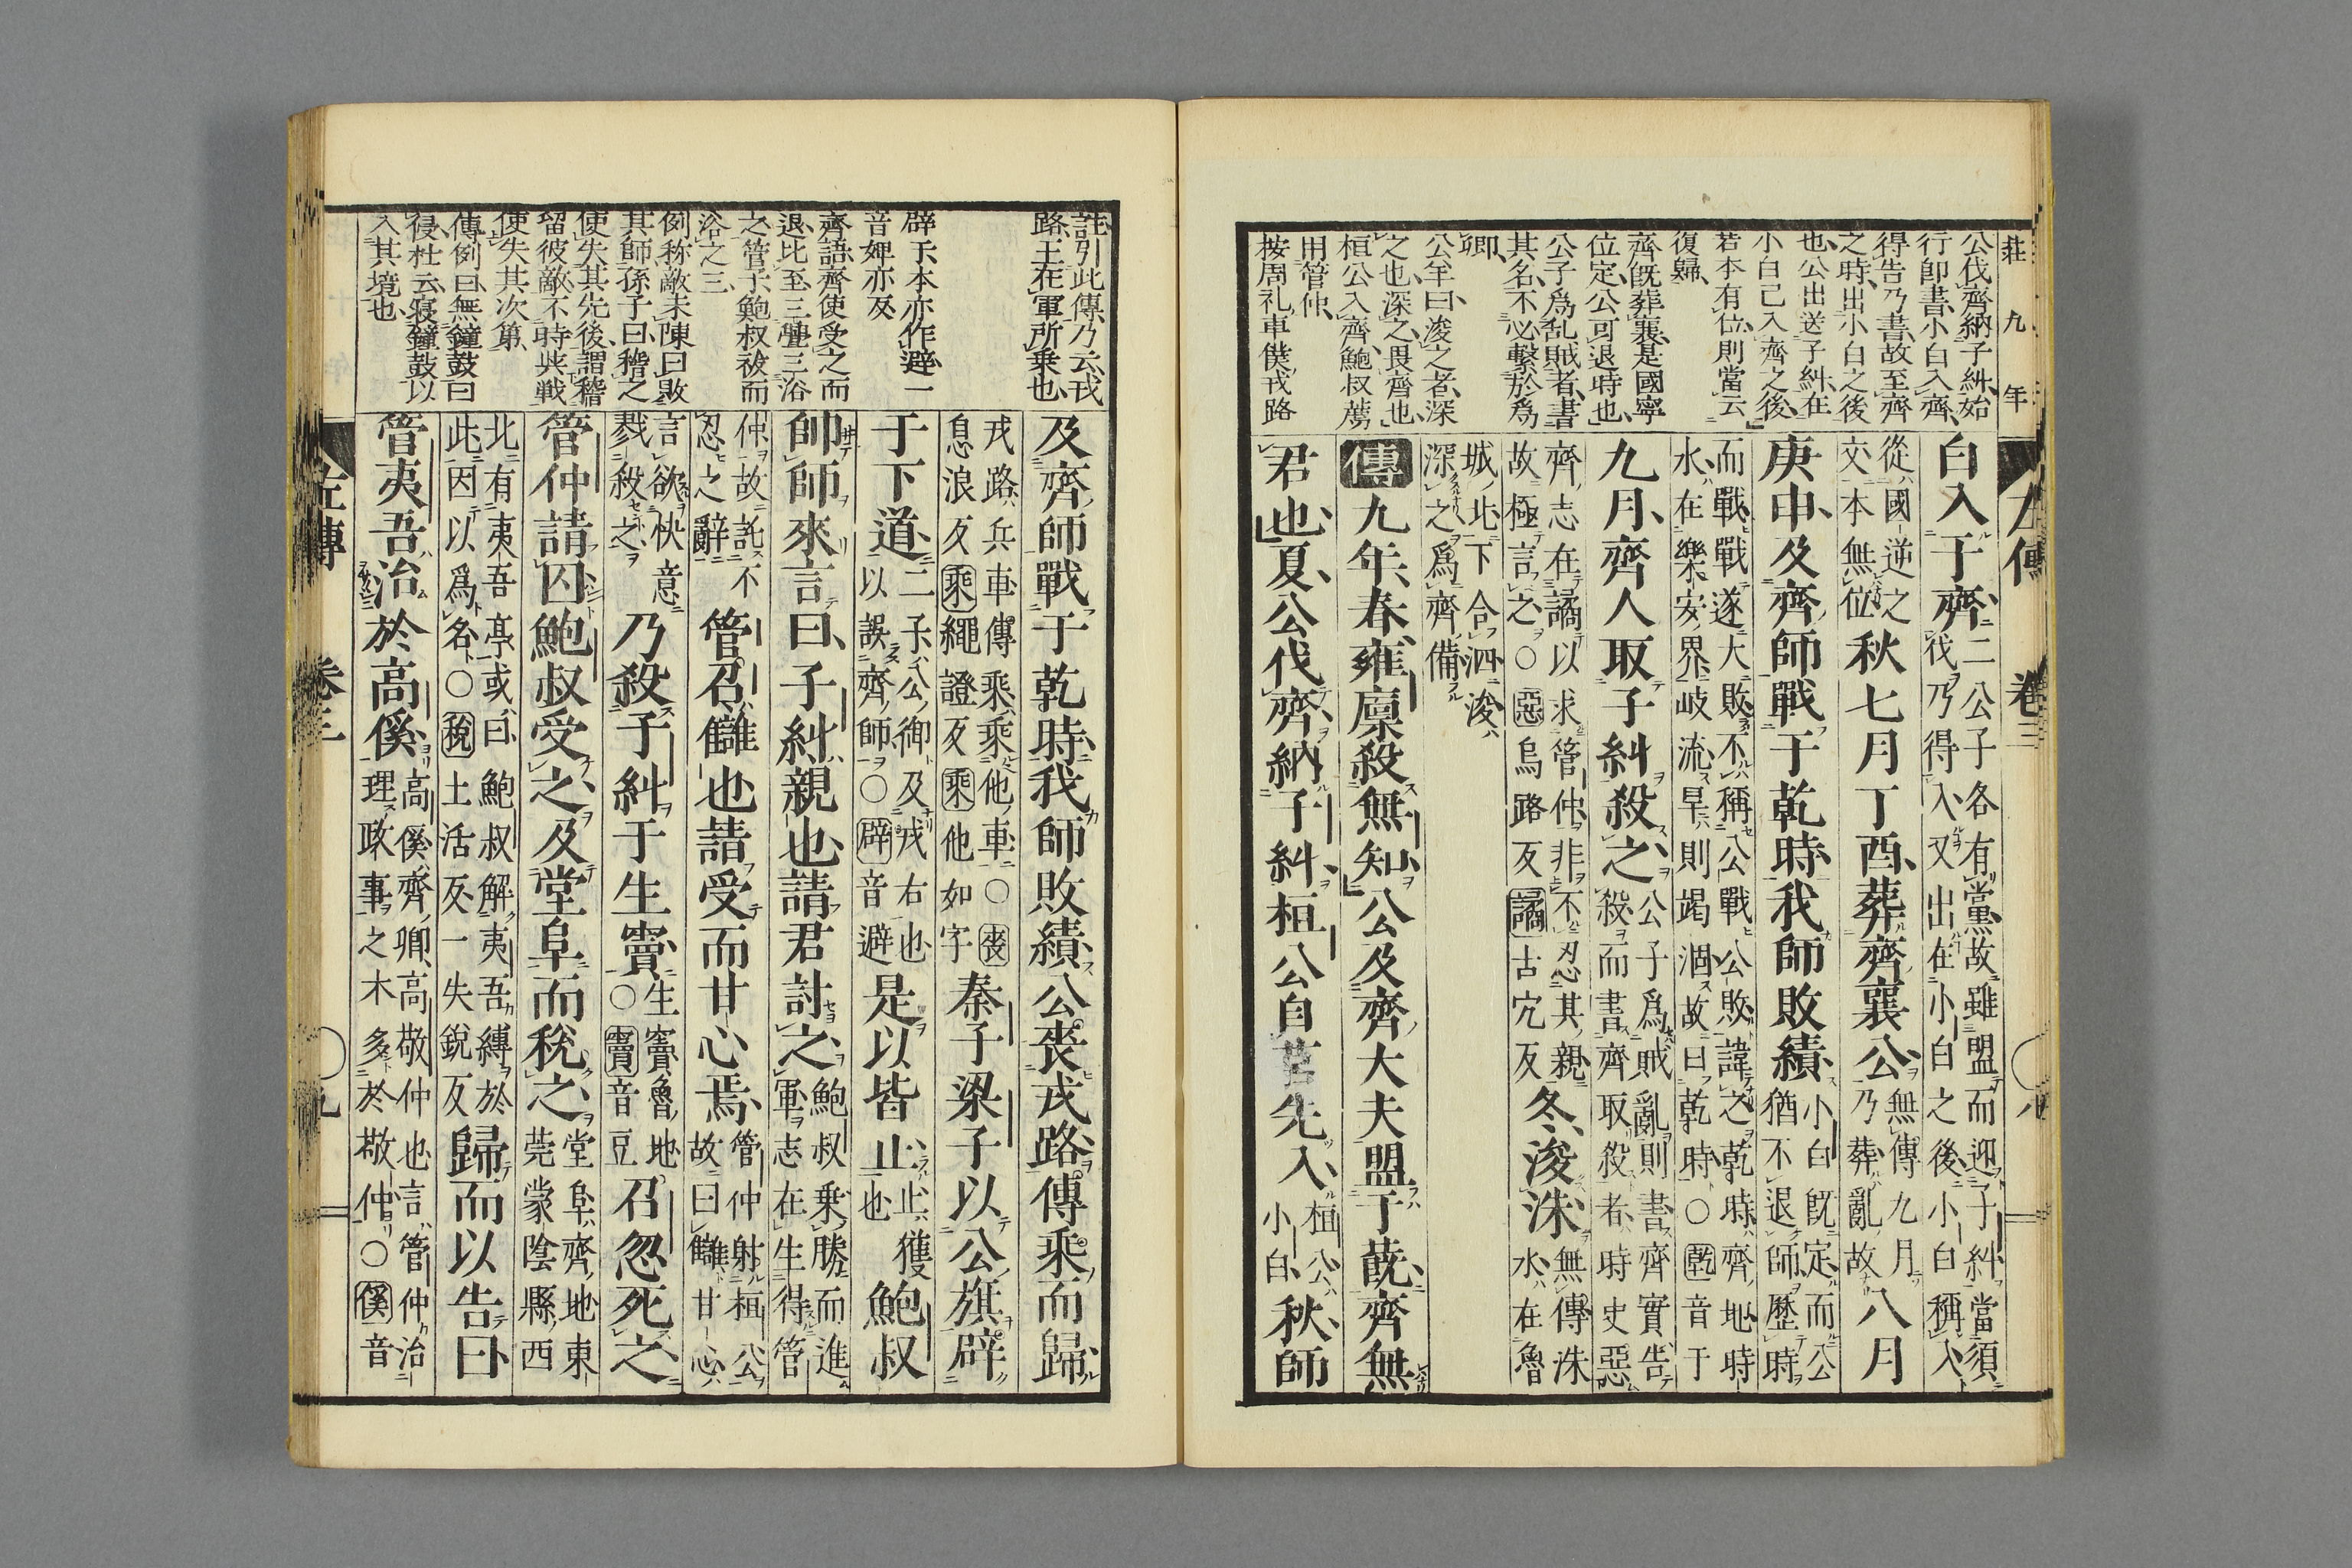 莊九年
公伐齊納子糾始
行即書小白入齊
得告乃書故至齊
之時出小白之後
也公出送子糾在
小白已入齊之後
若本有位則當云
復歸
齊既葬襄是國寧
位定公可退時也
公子爲乱賊者書
其名不必繫於爲
卿
公羊曰浚之者深
之也深之畏齊也
桓公入齊鮑叔薦
用管仲
按周礼車僕戎路
左傳 卷三 八
白入于齊二公子各有黨故雖盟而迎子糾當須
伐乃得入又出在小白之後小白稱入
從國逆之
交本無位秋七月丁酉葬齊襄公無傳九月
乃葬亂故八月
庚申及齊師戰于乾時我師敗績小白既定而公
猶不退師歷時
而戰戰遂大敗不稱公戰公敗諱之乾時齊地時
水在樂安界岐流旱則竭涸故曰乾時○乾音干
九月齊人取子糾殺之公子爲賊亂則書齊實告
殺而書齊取殺者時史惡
齊志在譎以求管仲非不忍其親
故極言之○惡烏路反譎古穴反冬浚洙無傳洙
水在魯
城北下合泗浚
深之爲齊備
傳九年春雍廩殺無知公及齊大夫盟于蔇齊無
君也夏公伐齊納子糾桓公自莒先入桓公
小白秋師
註引此傳乃云戎
路王在軍所乗也
辟下本亦作避一
音婢亦反
齊語齊使受之而
退比至三釁三浴
之管子鮑叔祓而
浴之三
例称敵未陳曰敗
其師孫子曰稽之
使失其先後謂稽
留彼敵不時與戦
使失其次第
傳例曰無鐘鼓曰
侵杜云寝鐘鼓以
入其境也
及齊師戰于乾時我師敗績公喪戎路傳乘而歸
戎路兵車傳乘乘他車○喪
息浪反乘繩證反乘他如字秦子梁子以公旗辟
于下道二子公御及戎右也
以誤齊師○辟音避是以皆止止獲
也鮑叔
帥師來言曰子糾親也請君討之鮑叔乘勝而進
軍志在生得管
仲故託不
忍之辭管召讎也請受而甘心焉管仲射桓公
故曰讎甘心
言欲快意
戮殺之乃殺子糾于生竇生竇魯地
○竇音豆召忽死之
管仲請囚鮑叔受之及堂阜而稅之堂阜齊地東
莞蒙陰縣西
北有夷吾亭或曰鮑叔解夷吾縛於
此因以爲名○稅土活反一失銳反歸而以告曰
管夷吾治於高傒高傒齊卿高敬仲也言管仲治
理政事之木多於敬仲○傒音
左傳 卷三 九